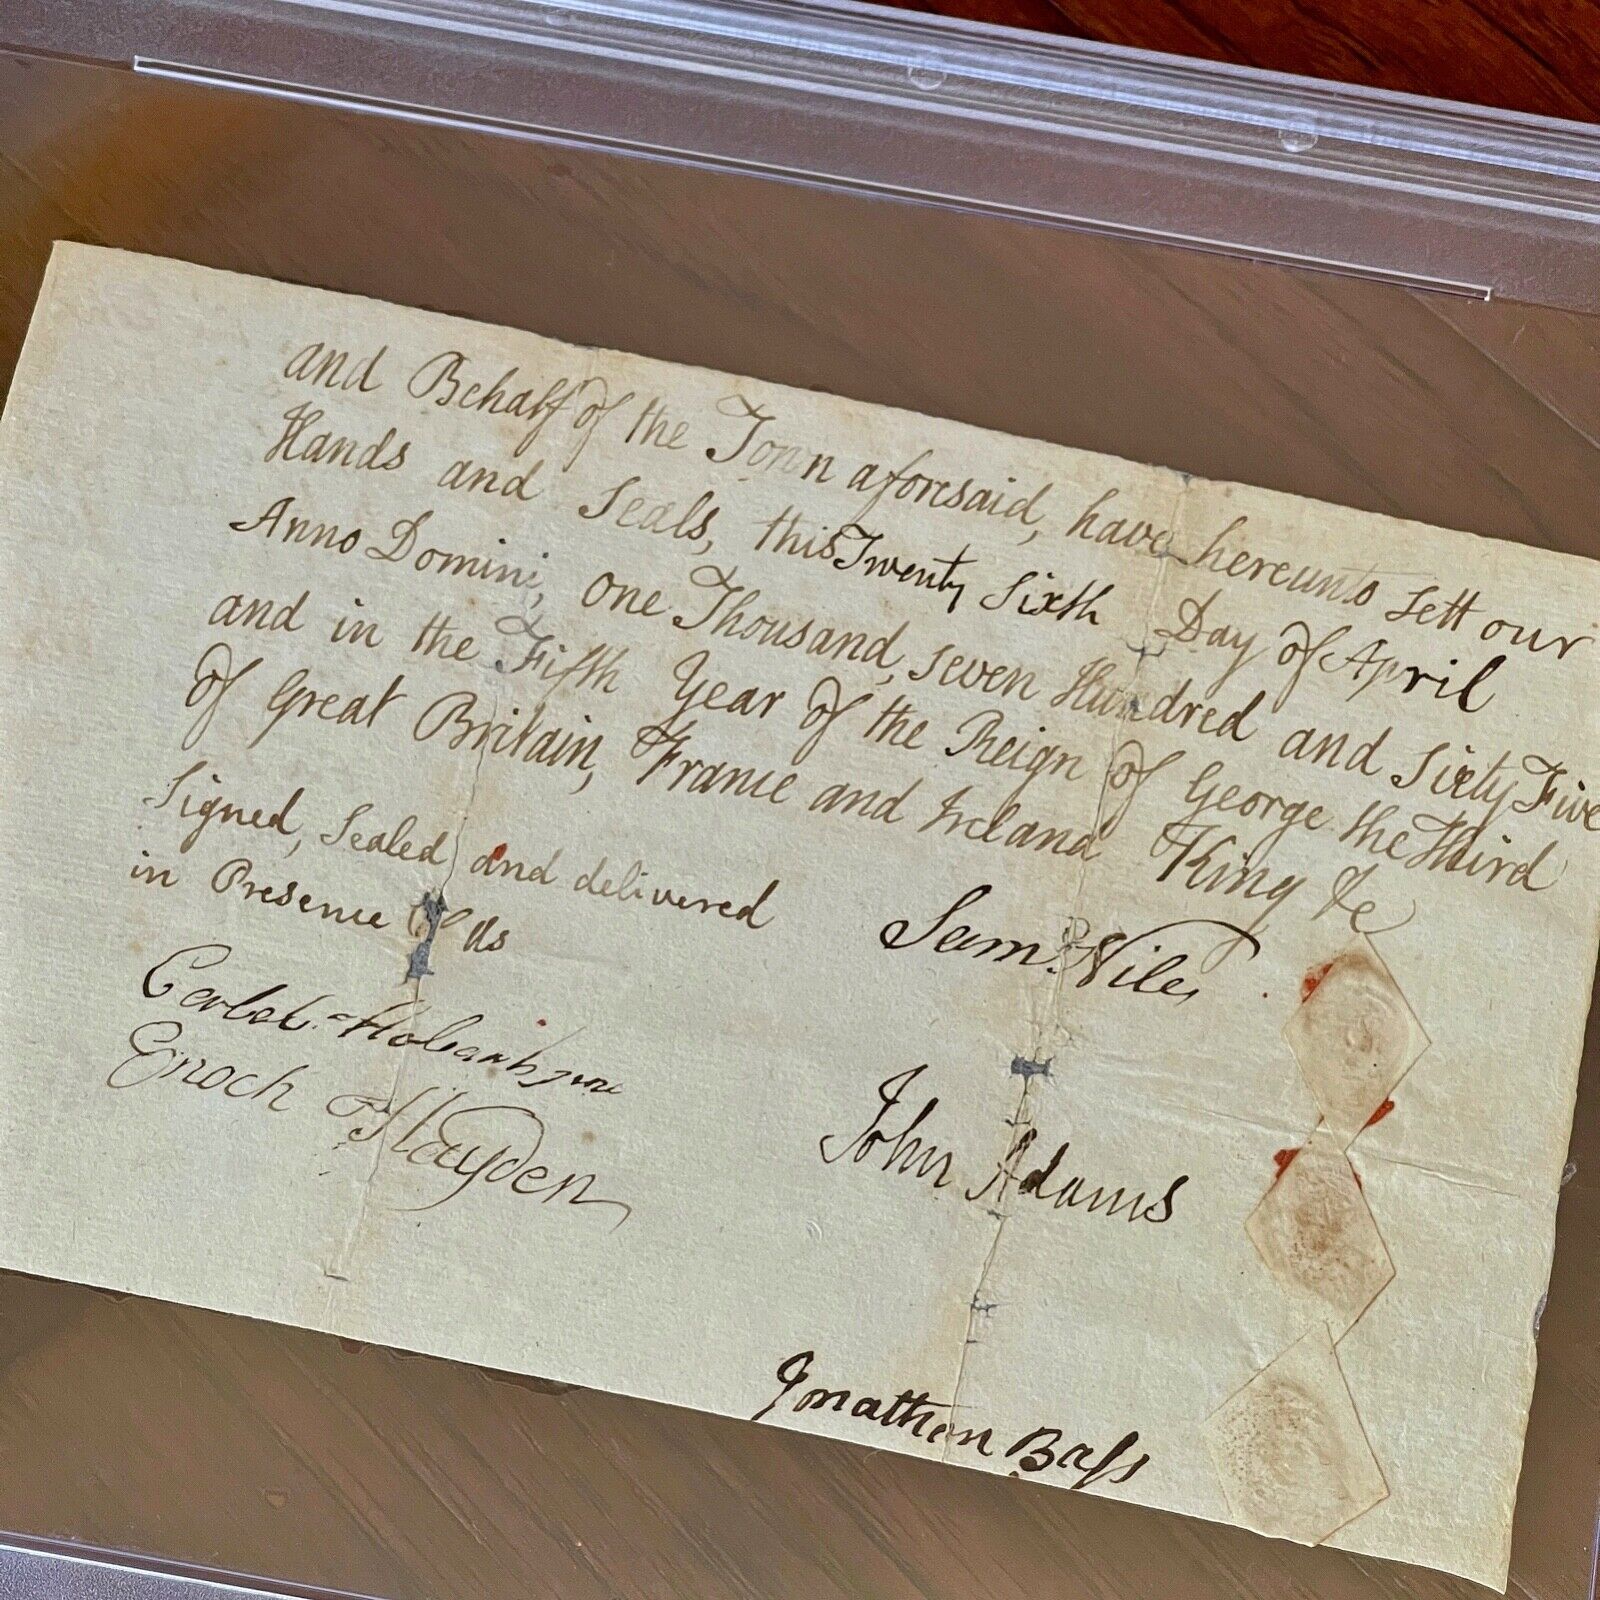 and Behalf of the Town aforesaid, have hereunto sett our
Hands and Seals, this Twenty Sixth Day of April
Anno Domini, One Thousand, Seven Hundred and Sixty Five
and in the Fifth Year of the Reign of George the Third
of Great Britain, France and Ireland King &c
Signed, Sealed and delivered
in Presence of Us
Sam. Niles
Enoch Hayden
John Adams
Jonathan Bass